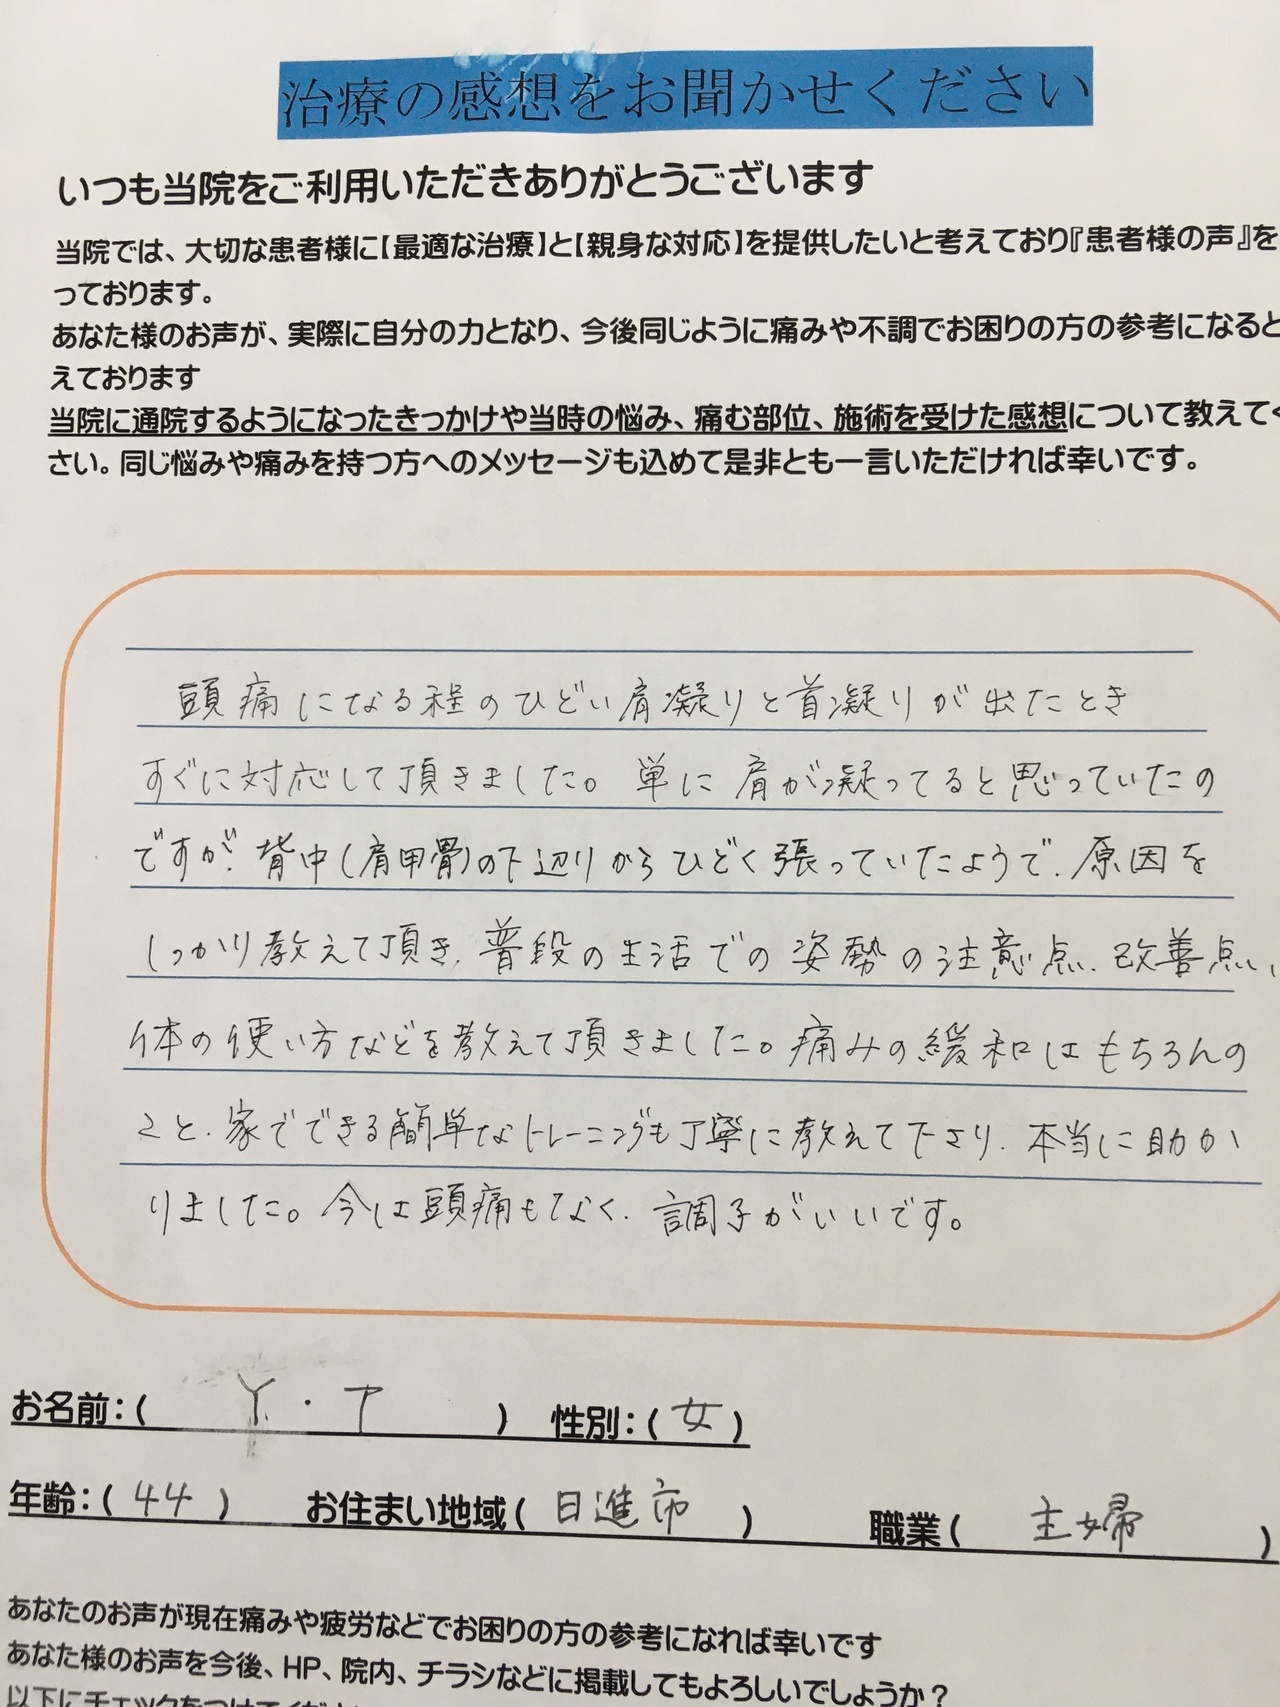 治療の感想をお聞かせください
いつも当院をご利用いただきありがとうございます
当院では、大切な患者様に【最適な治療】と【親身な対応】を提供したいと考えており『患者様の声』を
っております。
あなた様のお声が、実際に自分の力となり、今後同じように痛みや不調でお困りの方の参考になると
えております
当院に通院するようになったきっかけや当時の悩み、痛む部位、施術を受けた感想について教えてく
さい。同じ悩みや痛みを持つ方へのメッセージも込めて是非とも一言いただければ幸いです。
頭痛になる程のひどい肩凝りと首凝りが出たとき
すぐに対応して頂きました。単に肩が凝ってると思っていたの
ですが、背中(肩甲骨)の下辺りからひどく張っていたようで、原因を
しっかり教えて頂き、普段の生活での姿勢の注意点、改善点、
体の使い方などを教えて頂きました。痛みの緩和はもちろんの
こと、家でできる簡単なトレーニングも丁寧に教えて下さり、本当に助か
りました。今は頭痛もなく、調子がいいです。
お名前:( Y・T ) 性別:( 女 )
年齢:( 44 ) お住まい地域( 日進市 ) 職業( 主婦 )
あなたのお声が現在痛みや疲労などでお困りの方の参考になれば幸いです
あなた様のお声を今後、HP、院内、チラシなどに掲載してもよろしいでしょうか？
以下にチェックをつけてくだ